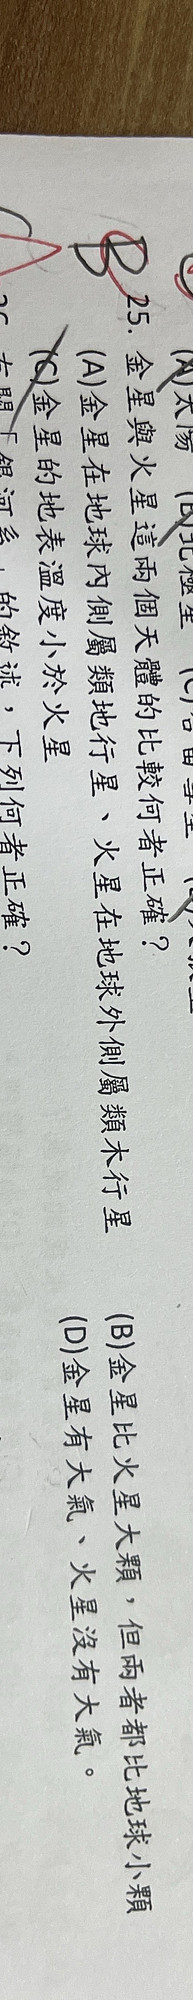 (A)太陽 (B)北極星
B 25. 金星與火星這兩個天體的比較何者正確？
(A)金星在地球內側屬類地行星、火星在地球外側屬類木行星 (B)金星比火星大顆，但兩者都比地球小顆
(C)金星的地表溫度小於火星 (D)金星有大氣、火星沒有大氣。
26. 有關「銀河系」的敘述，下列何者正確？